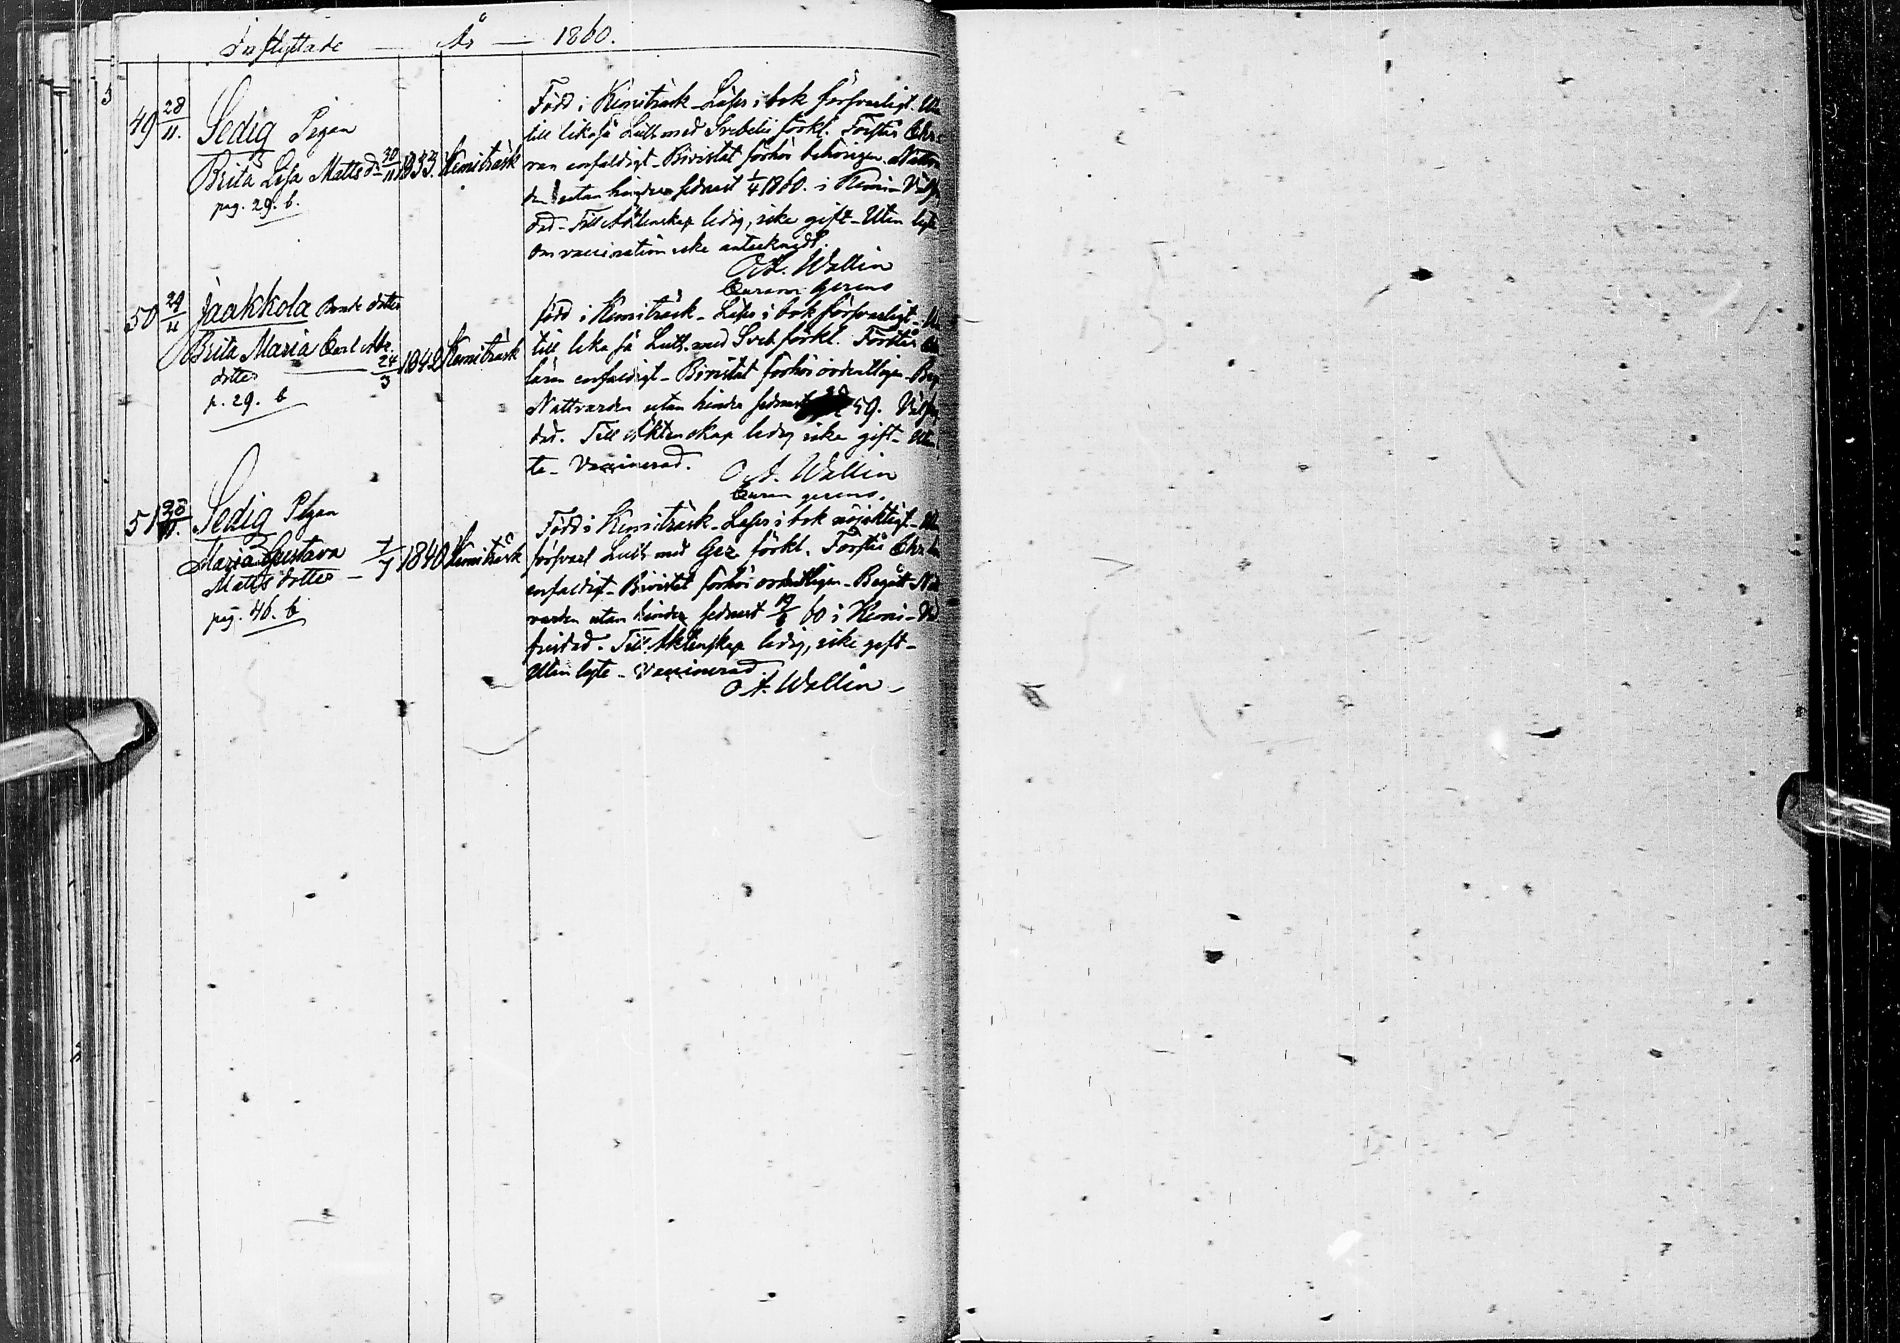 Inflyttade — År — 1860.
49 28/11. Sedig Pigan
Brita Lisa Matts d. 30/11 1833. Kemiträsk
pag. 29. b.
Född i Kemiträsk. Läser i bok försvarligt.
till lika så Luth med Svebelii förkl. Förstår
enfaldigt. Bivistat förhör behörigen. Nattvar
den utan hinder sednast 1/4 1860. i Kemi
Till Äktenskap ledig, icke gift. Utan lyte
om vaccination icke antecknadt.
O. A. Wallin
Curam gerens
50 29/11 Jaakkola Bonde dotter
Brita Maria Carl Abr.
dotter — 24/3 1842 Kemiträsk
p. 29. b
född i Kemiträsk. Läser i bok försvarligt.
till lika så Luth. med Sveb. förkl. Förstår
läran enfaldigt. Bivistat förhör ordentligen.
Nattvarden utan hinder sednast 59.
Till Äktenskap ledig icke gift.
te. Vaccinerad.
O. A. Wallin
Curam gerens.
51 30/11. Sedig Pigan
Maria Gustava
Matts dotter — 7/7 1840 Kemiträsk
pag. 46. b
Född i Kemiträsk. Läser i bok nöjaktigt.
försvarl Luth med Gez. förkl. Förstår
enfaldigt. Bivistat förhör ordentligen. Begått Natt
varden utan hinder sednast 60 i Kemi
frejdad. Till Äktenskap ledig, icke gift.
Utan lyte. Vaccinerad
O. A. Wallin